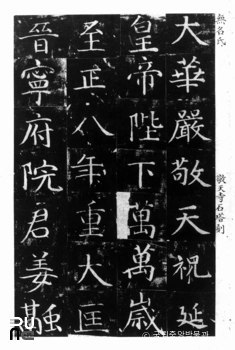 無名氏 敬天寺石塔刻
大華嚴敬天祝延
皇帝陛下萬萬歲
至正八年重大匡
晉寧府院君姜融
국립중앙박물관